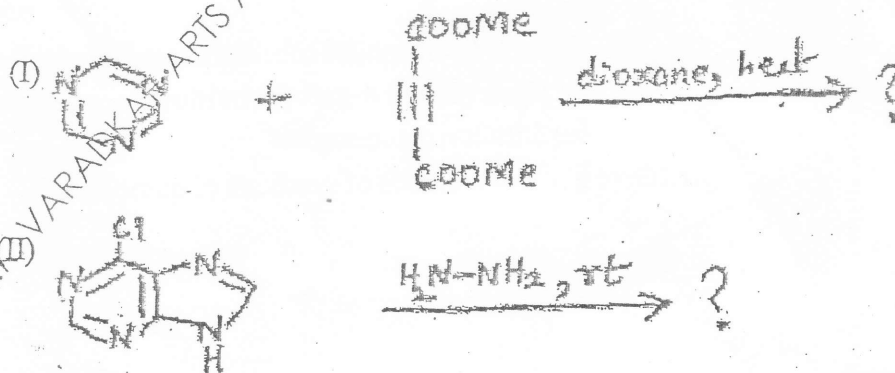 VARADKAR ARTS
(I) N N N + COOMe ||| COOMe dioxane, heat ?
(II) Cl N N N N H H2N-NH2, rt ?